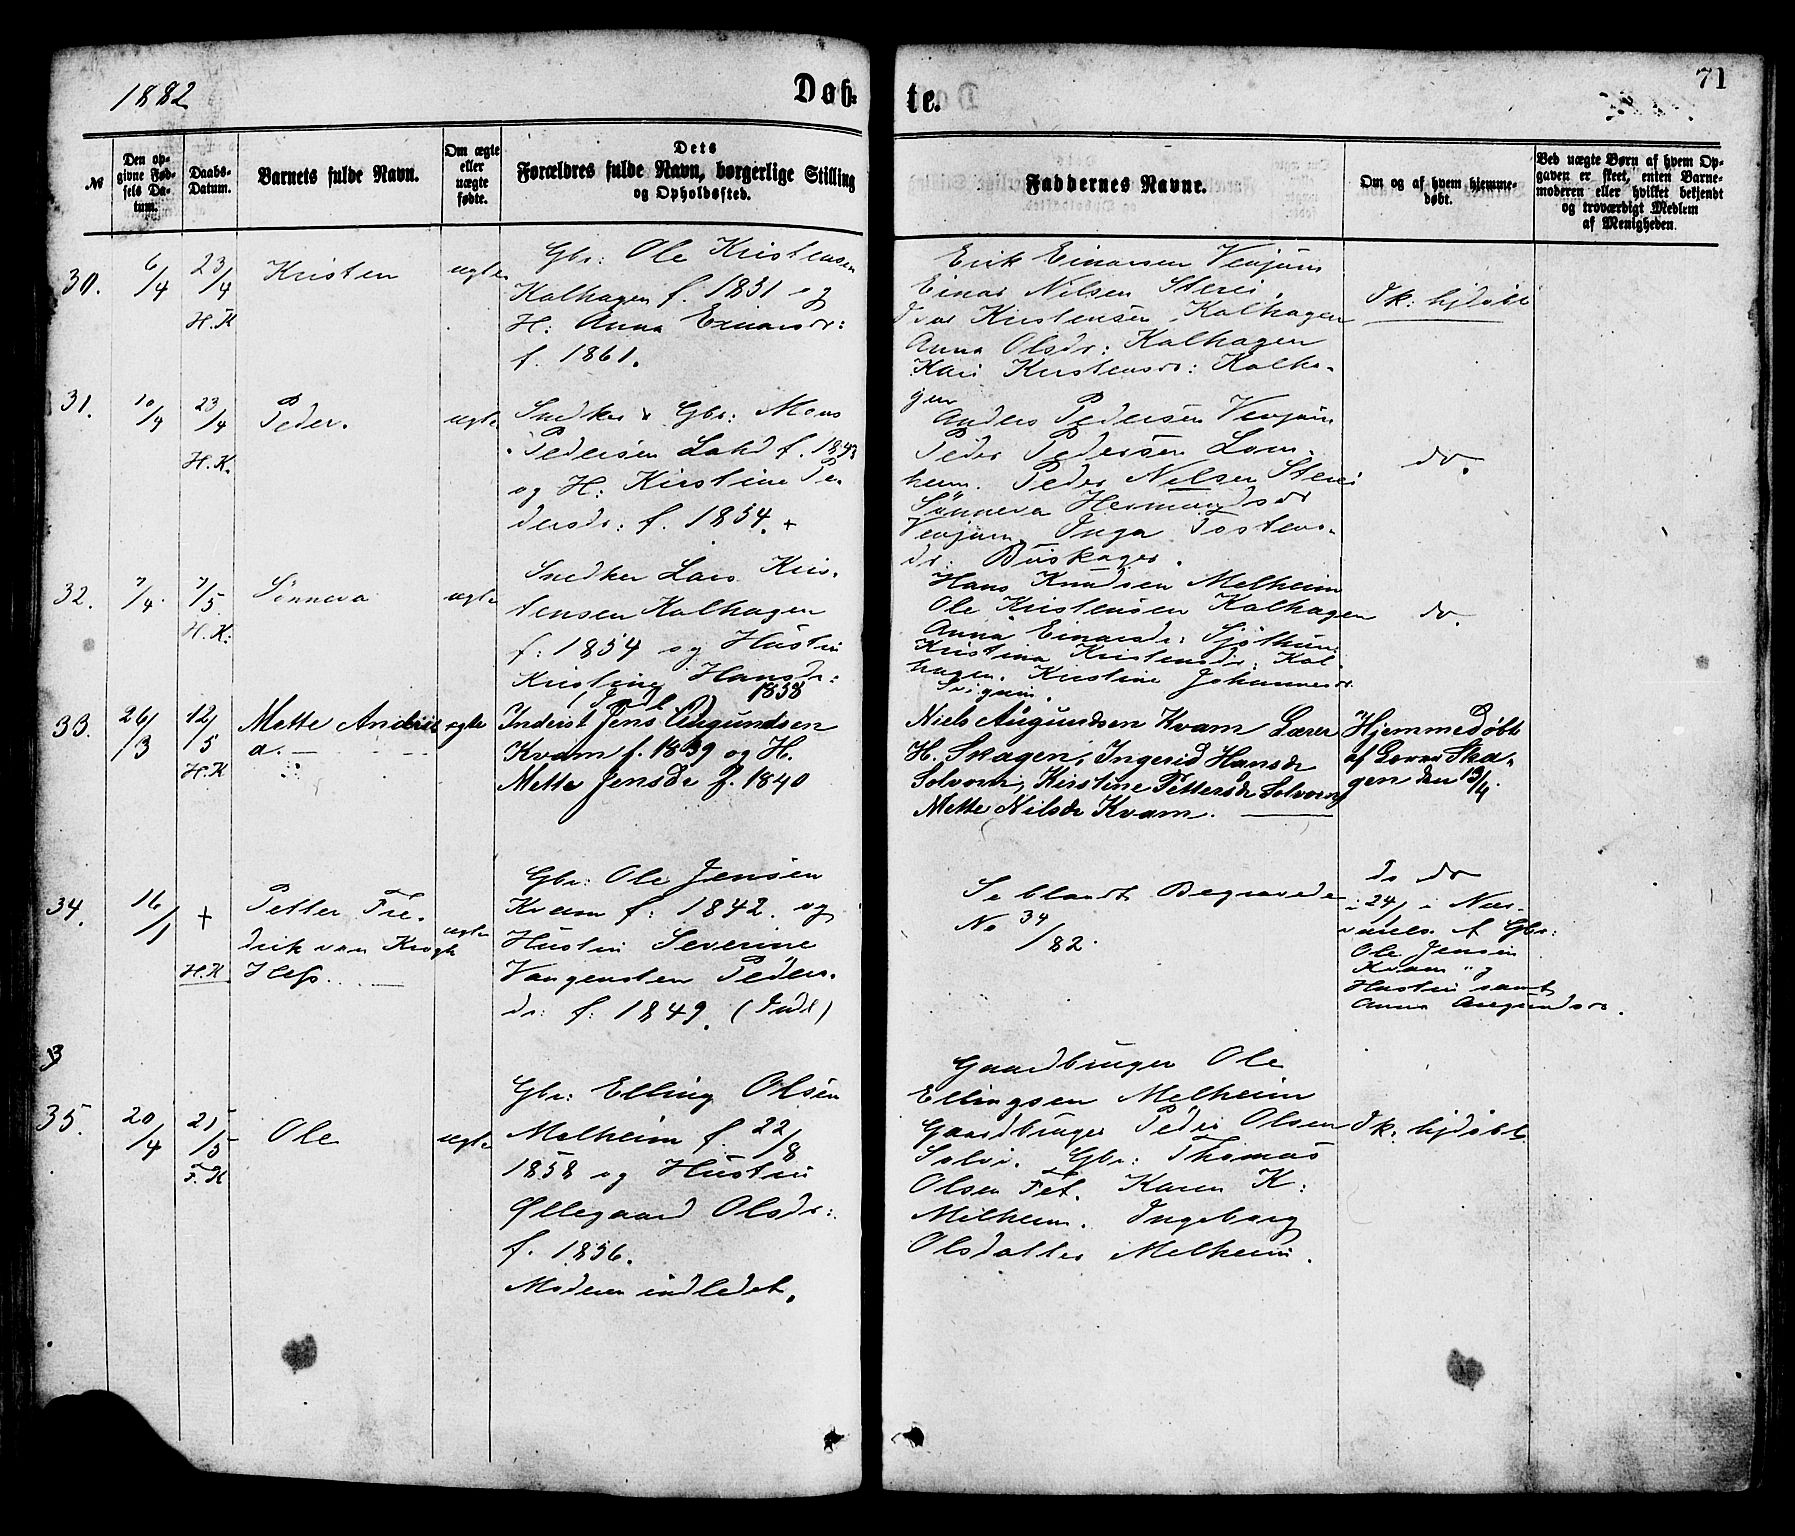 1882
Døb-
te.
71
№
Den op-
givne Fød-
sels Da-
tum.
Daabs-
Datum.
Barnets fulde Navn.
Om ægte
eller
uægte
fødte.
Dets
Forældres fulde Navn, borgerlige Stilling
og Opholdssted.
Faddernes Navne.
Om og af hvem hjemme-
døbt.
Ved uægte Børn af hvem Op-
gaven er skeet, enten Barne-
moderen eller hvilket bekjendt
og troværdigt Medlem
af Menigheden.
30.
6/4
23/4
H.K
Kristen
ægte
Gbr: Ole Kristensen
Kalhagen f. 1831 og
H: Anna Einarsdr:
f. 1861.
Erik Einarsen Venjum
Einar Nilsen Sterei,
Kristensen Kalhagen
Anna Olsdr: Kalhagen
Kari Kristensdr: Kalha-
gen
Ik: hjdøbt
31.
10/4
23/4
H.K.
Peder.
ægte
Snedker & Gbr: Mons
Pedersen Lahd f. 1843
og H: Kirstine Pe
dersdr: f. 1854. +
Anders Pedersen Venjum
Peder Pedersen Lom-
heim. Peder Nilsen Sterei
Sønneva Hermundsdr
Venjum Inga Tostens-
dr: Buskager.
do.
32.
7/4.
7/5
H.K:
Sønneva
ægte
Snedker Lars Kris-
tensen Kalhagen
f: 1854 og Hustru
Kristine Hansdr:
f. 1858
Hans Knudsen Melheim
Ole Kristensen Kalhagen
Anna Einarsdr: Sjøthun
Kristina Kristensdr: Kal
hagen. Kirstine Johannesdr
do.
33.
26/3
12/5
H.K
Mette Andrie
a.
ægte
Inderst Jens Augundsen
Kvam f. 1839 og H.
Mette Jensdr f. 1840
Niels Augundsen Kvam Lærer
H. Skagen, Ingerid Hansdr
Solvorn, Kirstine Pettersdr Solvorn
Mette Nilsdr Kvam.
Hjemmedøbt
af Lærer Ska-
gen den 13/4.
34.
16/1
+
H.K
Petter Fre-
drik van Krogh
Hess.
ægte
Gbr: Ole Jensen
Kvam f: 1842. og
Hustru Severine
Vangensten Peders-
dr: f: 1849. (Død)
Se blandt Begravede
No 34/82.
do do
24/1 i Nær-
værels. af Gbr:
Ole Jensen
Kvam og
Hustru samt
Anna Augundsdr.
3
35.
20/4
25/5
F.K
Ole
ægte
Gbr: Elling Olsen
Melheim f. 22/8
1858 og Hustru
Øllegaard Olsdr:
f. 1856.
Moderen indledet.
Gaardbruger Ole
Ellingsen Melheim
Gaardbruger Peder Olsen
Solvi. Gbr: Thomas
Olsen Fet. Karen K:
Melheim. Ingeborg
Olsdatter Melheim.
Ik: hjdøbt